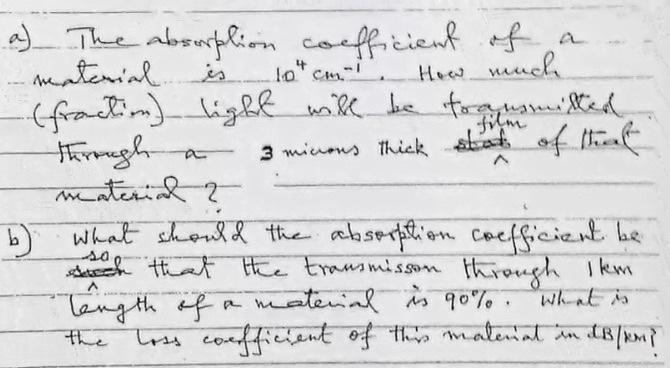 a) The absorption coefficient of a
material is 10⁴ cm⁻¹. How much
(fraction) light will be transmitted
through a 3 microns thick film of that
material ?
b) What should the absorption coefficient be
so that the transmisson through 1 km
length of a material is 90%. What is
the loss coefficient of this material in dB/km?